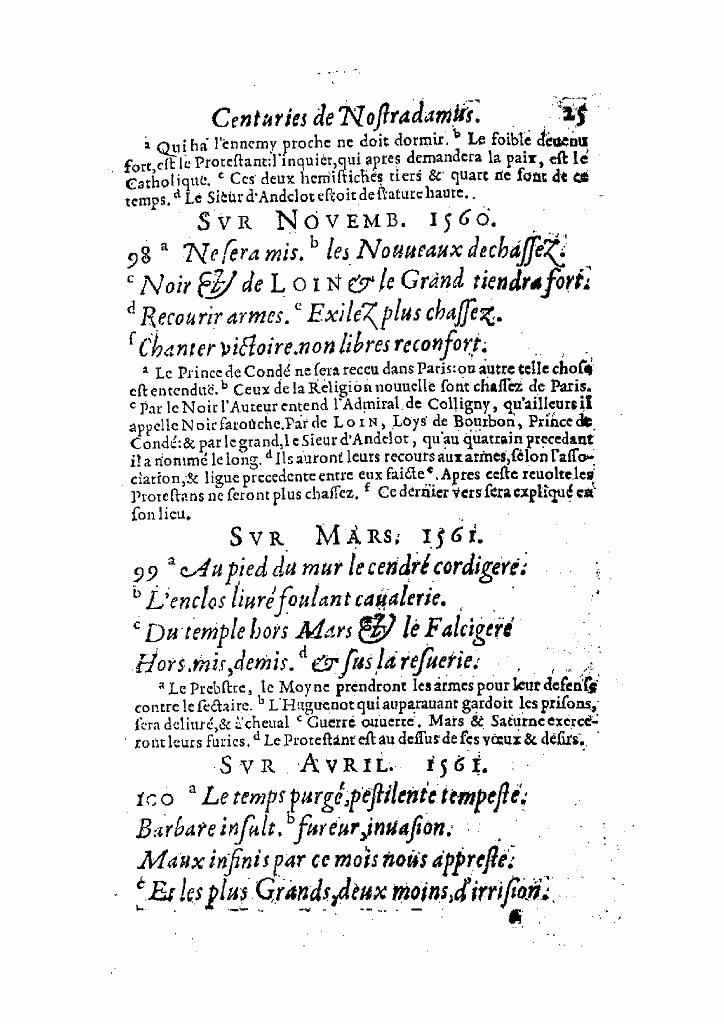 Centuries de Noſtradamus. 25
ᵃ Qui ha l'ennemy proche ne doit dormir. ᵇ Le foible deuenu
fort, eſt le Proteſtant: l'inquiet, qui apres demandera la paix, eſt le
Catholique. ᶜ Ces deux hemiſtiches tiers & quart ne ſont de ce
temps. ᵈ Le Sieur d'Andelot eſtoit de ſtature haute.
SVR NOVEMB. 1560.
98 ᵃ Ne ſera mis. ᵇ les Nouueaux dechaſſez.
ᶜ Noir & de LOIN & le Grand tiendra fort:
ᵈ Recourir armes. ᵉ Exilez plus chaſſez.
ᶠ Chanter victoire. non libres reconfort.
ᵃ Le Prince de Condé ne ſera receu dans Paris: ou autre telle choſe
eſt entenduë. ᵇ Ceux de la Religion nouuelle ſont chaſſez de Paris.
ᶜ Par le Noir l'Auteur entend l'Admiral de Colligny, qu'ailleurs il
appelle Noir farouche. Par de LOIN, Loys de Bourbon, Prince de
Condé: & par le grand, le Sieur d'Andelot, qu'au quatrain precedant
il a nommé le long. ᵈ Ils auront leurs recours aux armes, ſelon l'aſſo-
ciation, & ligue precedente entre eux faicte ᵉ. Apres ceſte reuolte les
Proteſtans ne ſeront plus chaſſez. ᶠ Ce dernier vers ſera expliqué en
ſon lieu.
SVR MARS. 1561.
99 ᵃ Au pied du mur le cendré cordigere:
ᵇ L'enclos liuré foulant caualerie.
ᶜ Du temple hors Mars & le Falcigere
Hors. mis, demis. ᵈ & ſus la reſuerie.
ᵃ Le Prebſtre, le Moyne prendront les armes pour leur defenſe
contre le ſectaire. ᵇ L'Huguenot qui auparauant gardoit les priſons,
ſera deliuré, & à cheual ᶜ Guerre ouuerte. Mars & Saturne exerce-
ront leurs furies. ᵈ Le Proteſtant eſt au deſſus de ſes vœux & deſirs.
SVR AVRIL. 1561.
100 ᵃ Le temps purgé, peſtilente tempeſte:
Barbare inſult. ᵇ fureur, inuaſion:
Maux infinis par ce mois nous appreſte:
ᶜ Et les plus Grands, deux moins, d'irriſion.